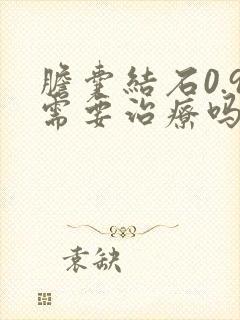 膽囊結石0.9
需要治療嗎
袁缺